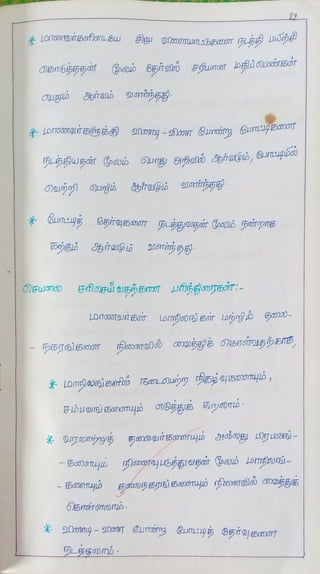 29
* மாணவர்களிடையே சிறு விளையாட்டுகளை நடத்தி பயிற்சி
கொடுத்ததன் மூலம் தேர்வில் சரியான மதிப்பெண்கள்
பெறும் ஆர்வம் வளர்ந்தது.
* மாணவர்களுக்கு வினாடி - வினா போன்ற போட்டிகளை
நடத்தியதன் மூலம் பொது அறிவில் ஆர்வமும், போட்டியில்
வெற்றி பெறும் ஆர்வமும் வளர்ந்தது.
* போட்டித் தேர்வுகளை நடத்துவதன் மூலம் நன்றாக
கற்கும் ஆர்வமும் வளர்ந்தது.
செயலை சரிசெய்வதற்கான பரிந்துரைகள்:-
மாணவர்கள் மாநிலங்கள் மற்றும் தலை-
- நகரங்களை நினைவில் வைத்துக் கொள்வதற்காக,
* மாநிலங்களில் நடைபெற்ற நிகழ்வுகளையும்,
சம்பவங்களையும் எடுத்துக் கூறலாம்.
* வரலாற்றுத் தலைவர்களையும் அல்லது பிரபலங்-
- களையும் நினைவுபடுத்துவதன் மூலம் மாநிலங்-
- களையும் தலைநகரங்களையும் நினைவில் வைத்துக்
கொள்ளலாம்.
* வினாடி - வினா போன்ற போட்டித் தேர்வுகளை
நடத்தலாம்.